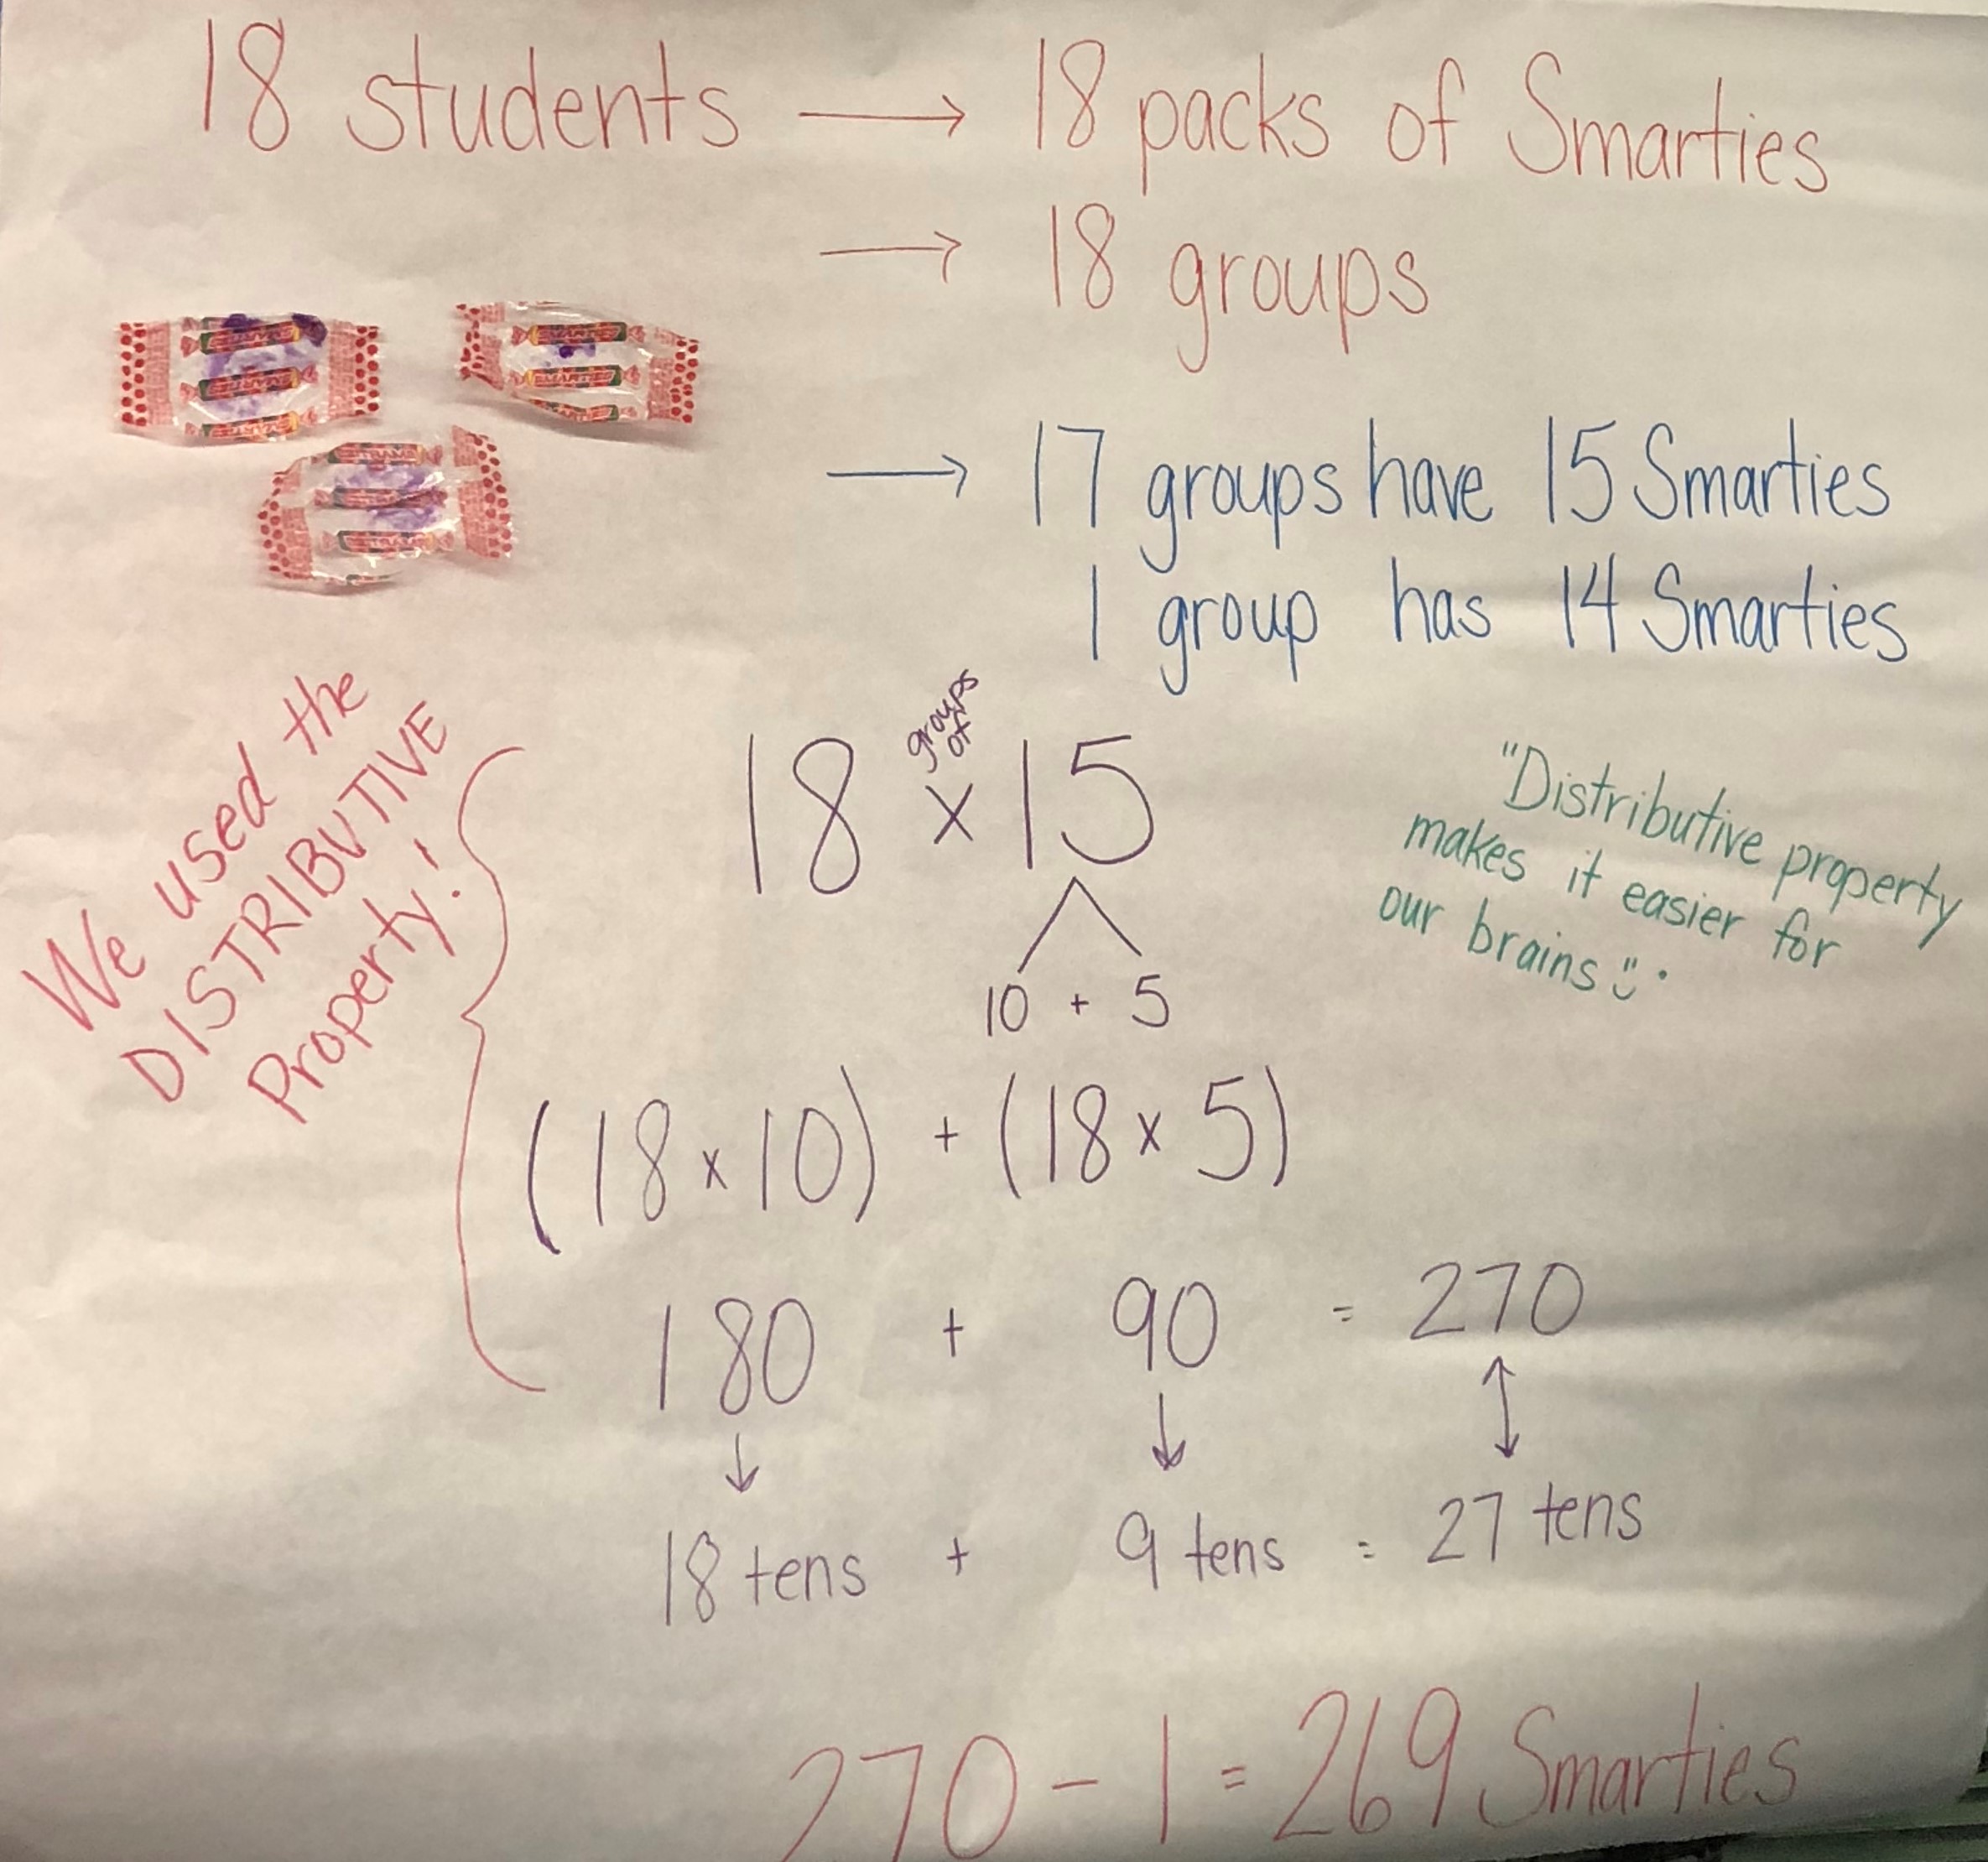 18 students → 18 packs of Smarties
→ 18 groups
SMARTIES
→ 17 groups have 15 Smarties
1 group has 14 Smarties
We used the
DISTRIBUTIVE
Property!
groups
of
18 x 15
10 + 5
"Distributive property
makes it easier for
our brains ü.
(18 x 10) + (18 x 5)
180 + 90 = 270
↓ ↓ ↕
18 tens + 9 tens = 27 tens
270 - 1 = 269 Smarties